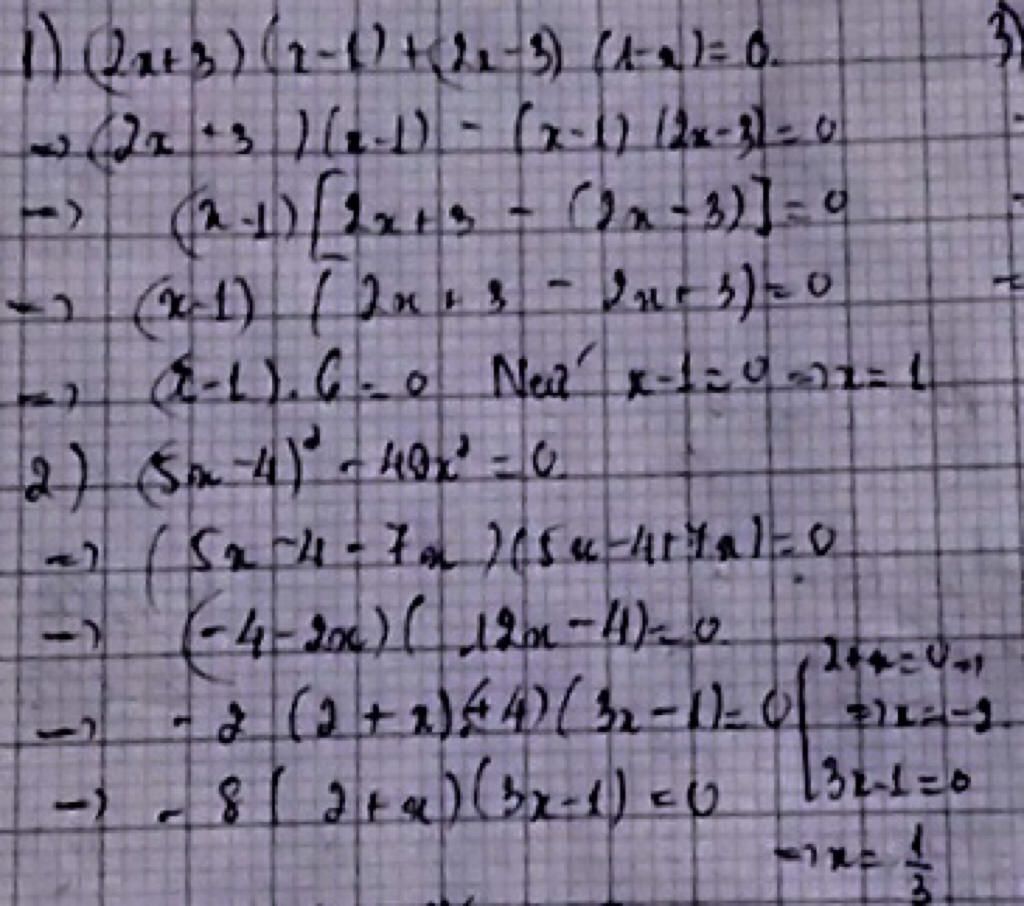 1) (2x+3)(x-1)+(2x-3)(1-x)=0.
=> (2x+3)(x-1) - (x-1)(2x-3)=0
=> (x-1)[2x+3 - (2x-3)]=0
=> (x-1)(2x+3 - 2x+3)=0
=> (x-1).6=0 Nếu x-1=0 => x=1
2) (5x-4)² - 49x² = 0.
=> (5x-4-7x)(5x-4+7x)=0
=> (-4-2x)(12x-4)=0.
=> -2(2+x)(+4)(3x-1)=0 [2+x=0 =>
=> x=-2.
=> -8(2+x)(3x-1)=0 3x-1=0
=> x= 1/3
3)